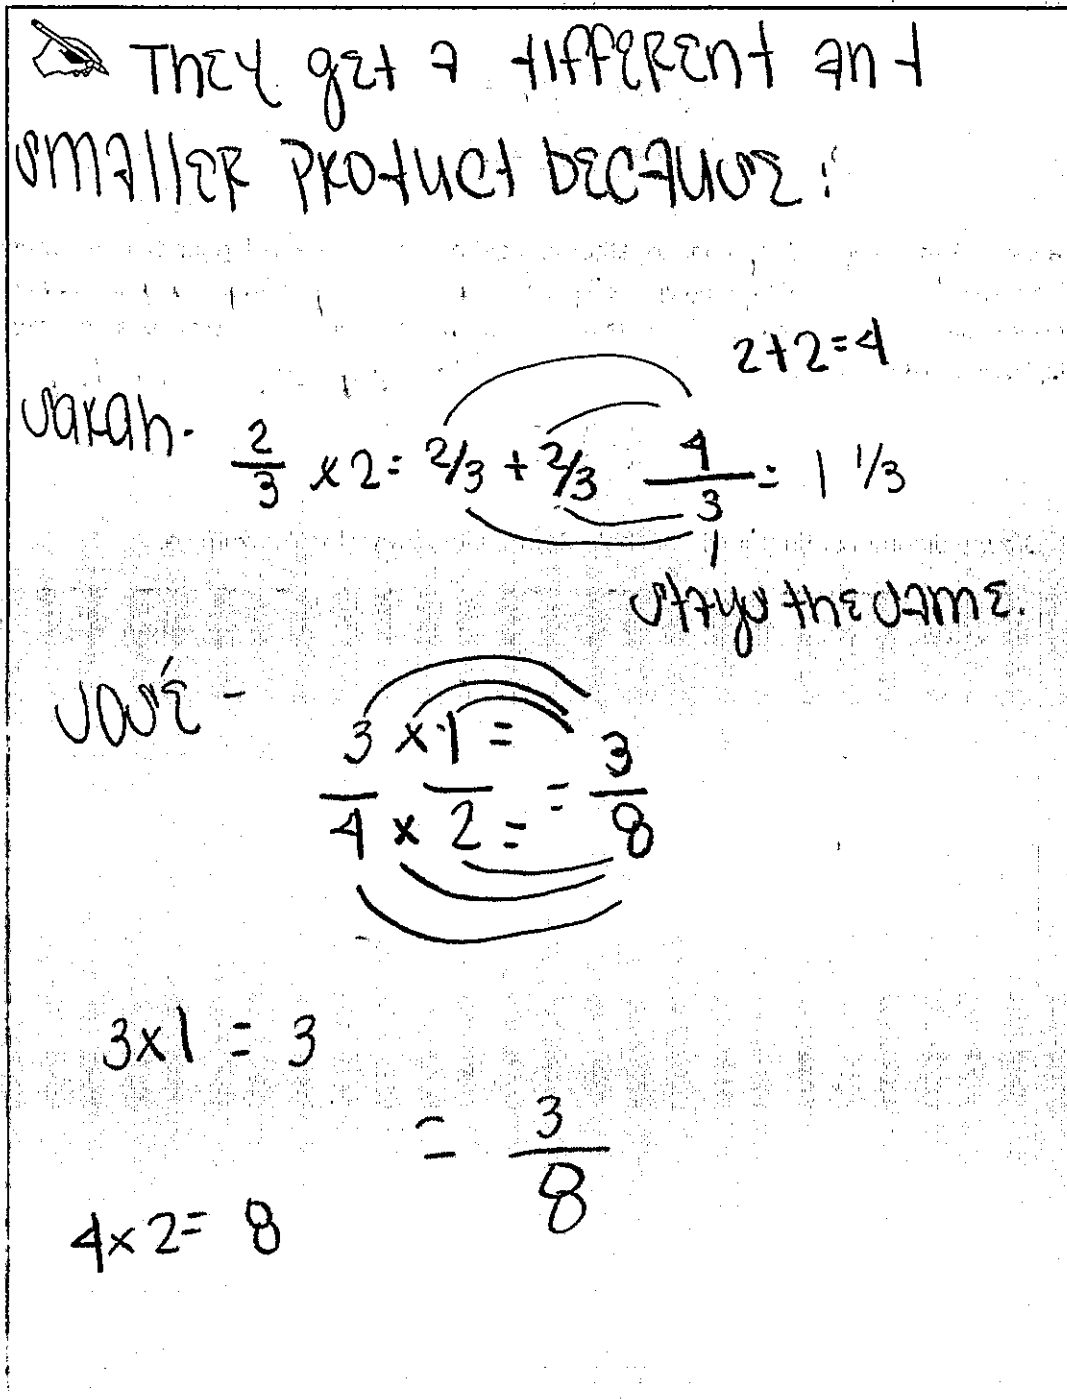 They get a different and
smaller product because:
2+2=4
Sarah. 2/3 x2= 2/3 + 2/3 4/3 = 1 1/3
stays the same.
José - 3 x 1 = 3
4 x 2 = = 8
3x1 = 3
= 3/8
4x2= 8